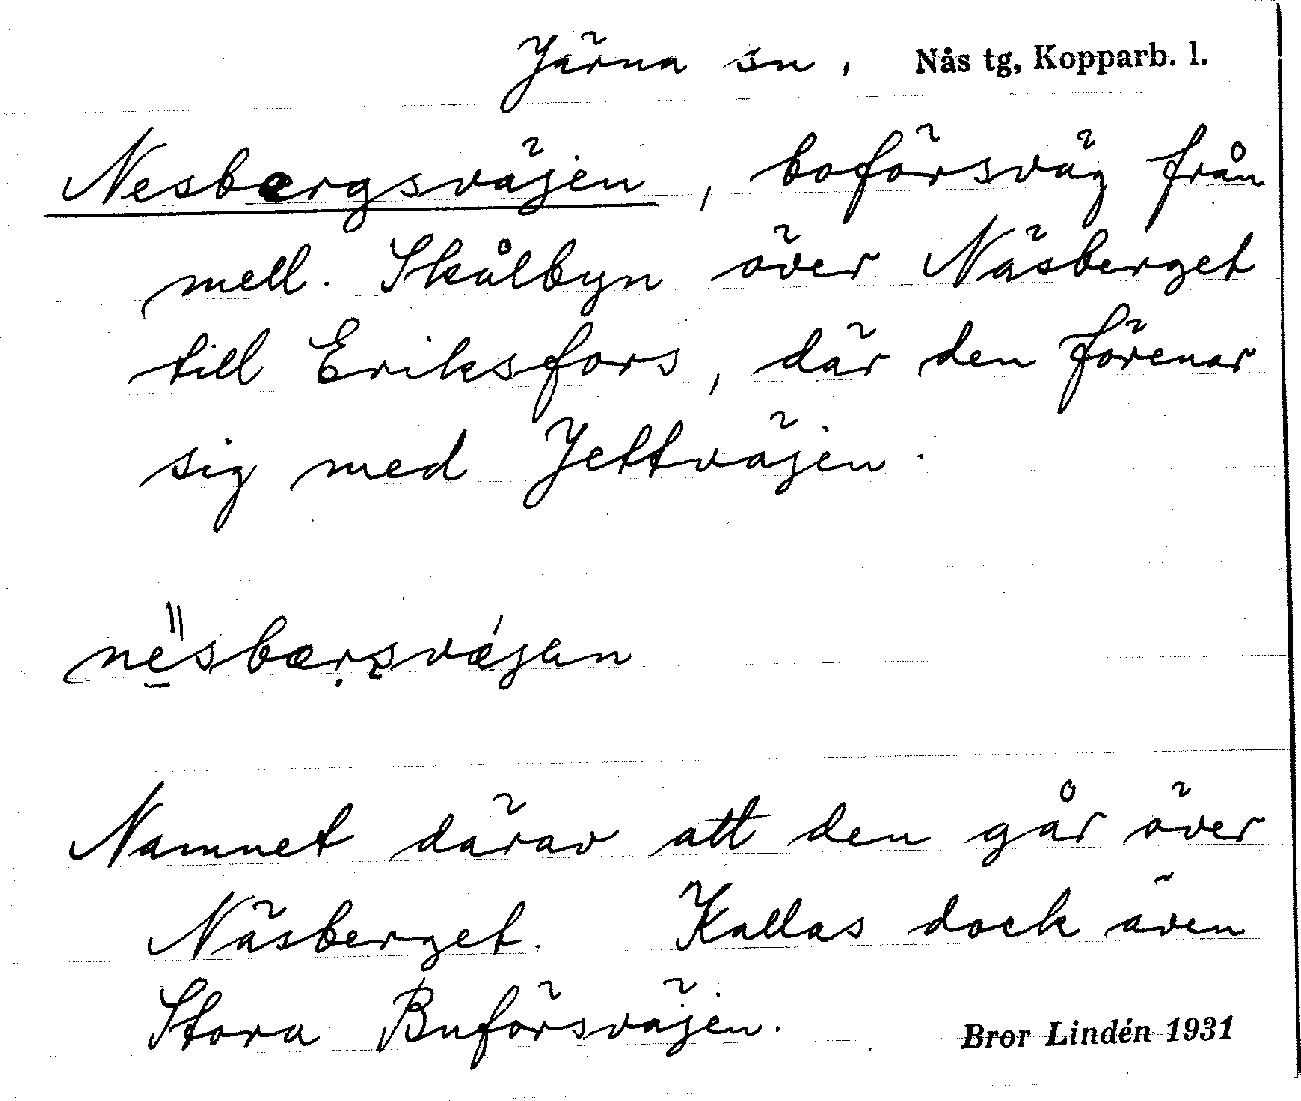 Järna sn, Nås tg, Kopparb. l.
Nesbergsväjen, boförsväg från
mell. Skålbyn över Näsberget
till Eriksfors, där den förenar
sig med Jettväjen.
nesbærsvæjen
Namnet därav att den går över
Näsberget. Kallas dock även
Stora Buförsväjen.
Bror Lindén 1931